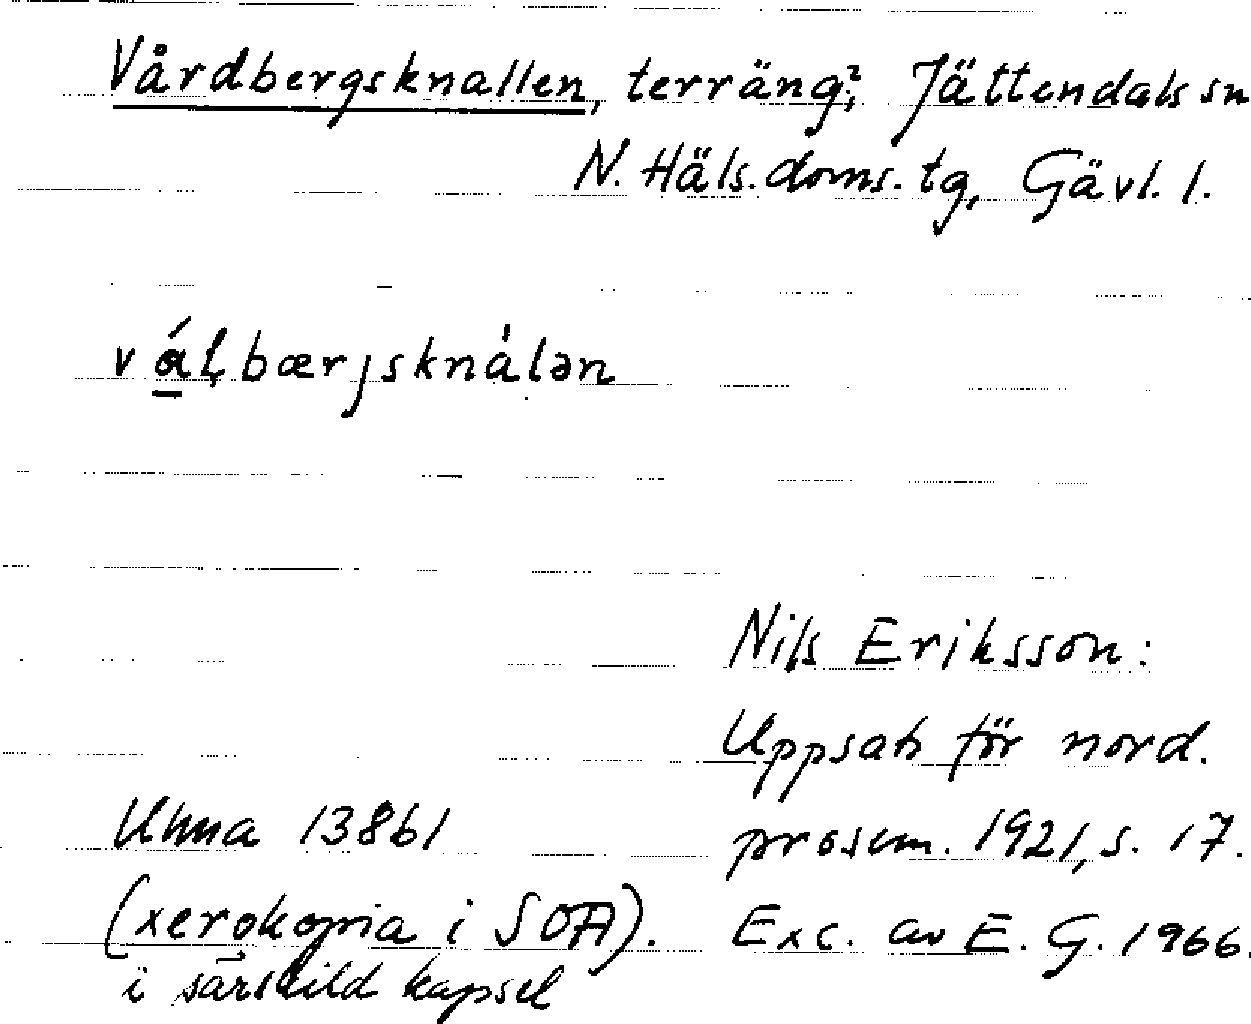 Vårdbergsknallen, terräng?, Jättendals sn
N. Häls. doms. tg, Gävl. l.
vá̱ḷbærjsknálən
Nils Eriksson:
Uppsats för nord.
Uhma 13861 prosem. 1921, s. 17.
(xerokopia i SOA). Exc. av E. G. 1966.
i särskild kapsel